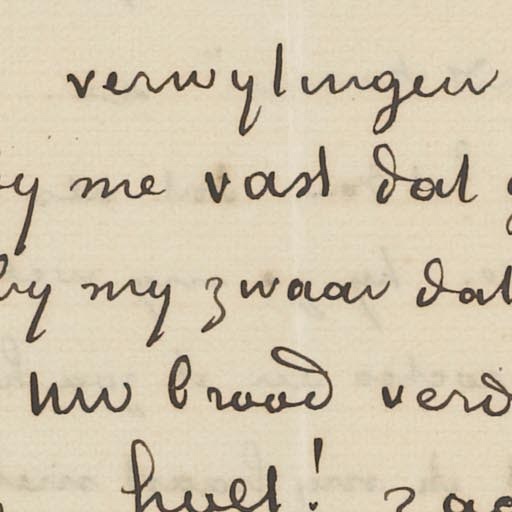 verwylingen
by me vast dat
by my zwaar dat
uw brood verd
hoel!